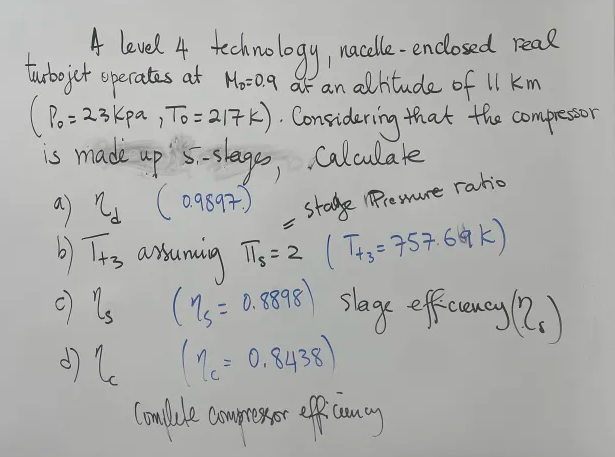 A level 4 technology, nacelle-enclosed real
turbojet operates at M₀=0.9 at an altitude of 11 km
(P₀=23kpa, T₀=217k). Considering that the compressor
is made up 5-stages, Calculate
a) ηd (0.9897)
= stage Pressure ratio
b) Tt3 assuming πs=2 (Tt3=757.69K)
c) ηs (ηs=0.8898) stage efficiency(ηs)
d) ηc (ηc=0.8438)
Complete compressor efficiency